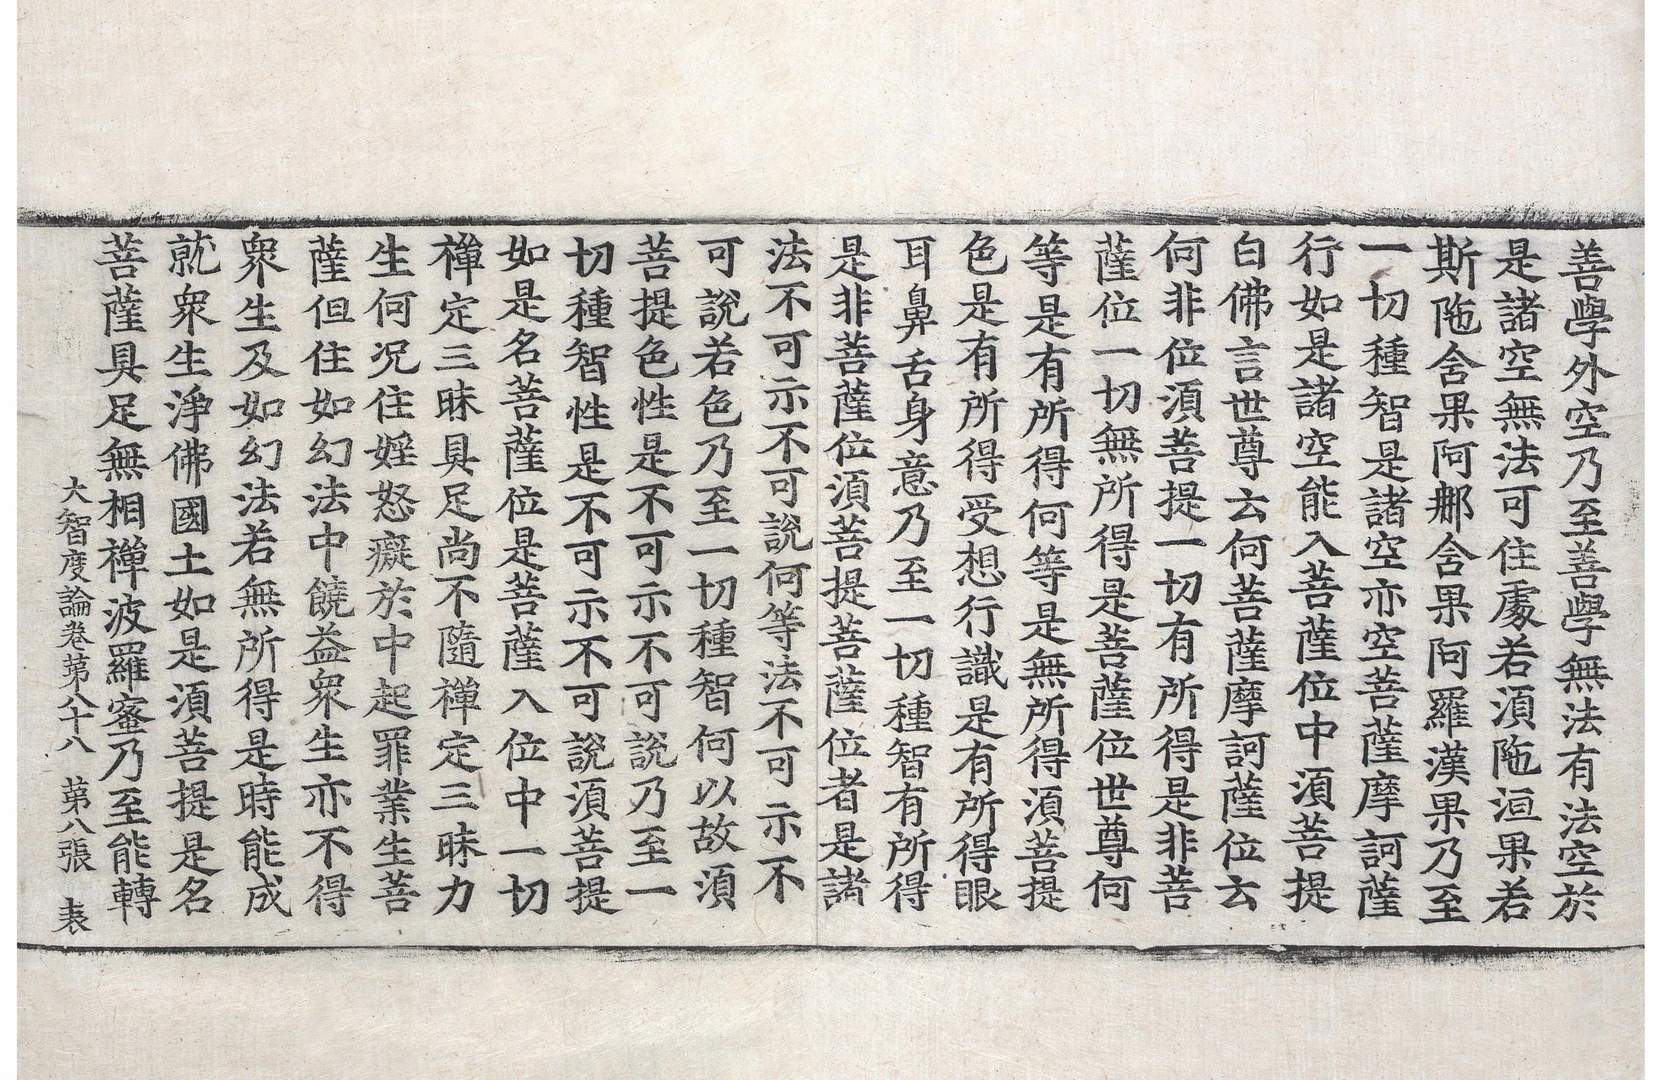 善學外空乃至善學無法有法空於
是諸空無法可住處若湏陁洹果若
斯陁含果阿郍含果阿羅漢果乃至
一切種智是諸空亦空菩薩摩訶薩
行如是諸空能入菩薩位中湏菩提
白佛言世尊云何菩薩摩訶薩位云
何非位湏菩提一切有所得是非菩
薩位一切無所得是菩薩位世尊何
等是有所得何等是無所得湏菩提
色是有所得受想行識是有所得眼
耳鼻舌身意乃至一切種智有所得
是非菩薩位湏菩提菩薩位者是諸
法不可示不可說何等法不可示不
可說若色乃至一切種智何以故湏
菩提色性是不可示不可說乃至一
切種智性是不可示不可說湏菩提
如是名菩薩位是菩薩入位中一切
禪定三昧具足尚不隨禪定三昧力
生何況住婬怒癡於中起罪業生菩
薩但住如幻法中饒益眾生亦不得
眾生及如幻法若無所得是時能成
就眾生淨佛國土如是湏菩提是名
菩薩具足無相禪波羅蜜乃至能轉
大智度論卷第八十八　第八張　表